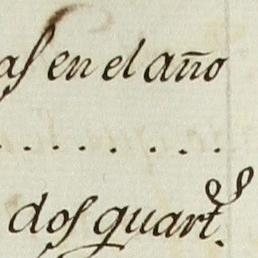 as en el año
. . . . . . . . .
dos quart.s